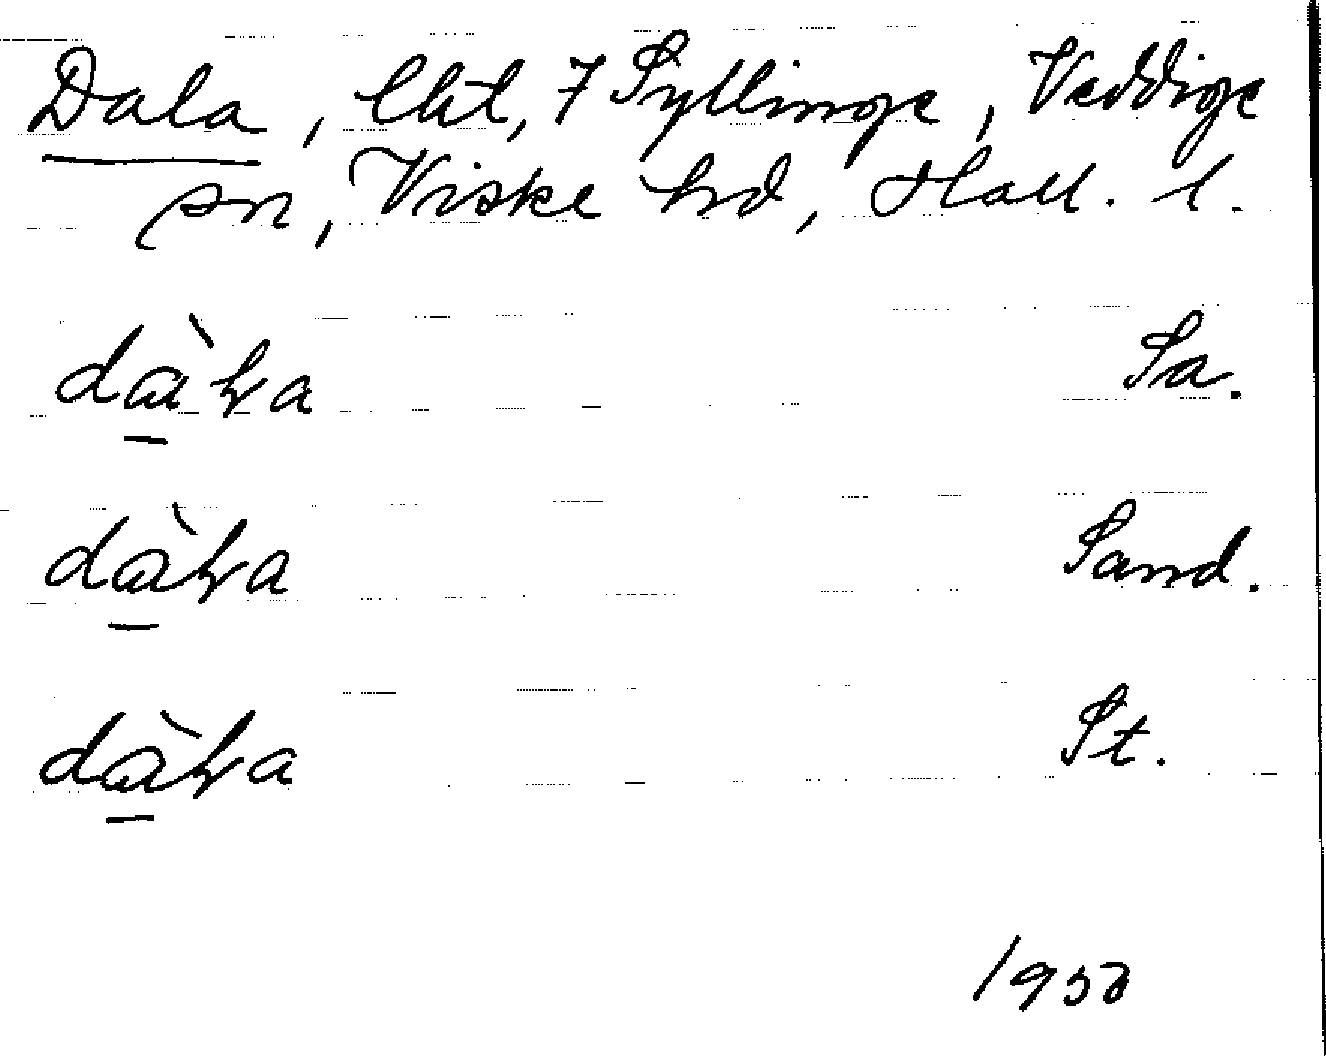 Dala, lht, 7 Syllinge, Veddige
sn, Viske hd, Hall. l.
dàɽa Sa.
dàɽa Sand.
dàɽa St.